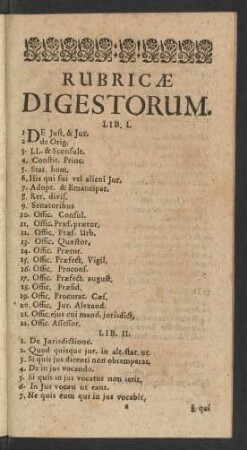 RUBRICÆ
DIGESTORUM.
LIB. I.
1 DE Just. & Jur.
2 de Orig.
3. LL. & Sconsult.
4. Constit. Princ.
5. Stat. hom.
6. His qui sui vel alieni Jur.
7. Adopt. & Emancipat.
8. Rer. divis.
9. Senatoribus
10. Offic. Consul.
11. Offic. Præf. prætor.
12. Offic. Præf. Urb.
13. Offic. Quæstor.
14. Offic. Prætor.
15. Offic. Præfect. Vigil.
16. Offic. Procons.
17. Offic. Præfect. august.
18. Offic. Præsid.
19. Offic. Procurat. Cæs.
20. Offic. Jur. Alexand.
21. Offic. ejus cui mand. jurisdict.
22. Offic. Assessor.
LIB. II.
1. De Jurisdictione.
2. Quod quisque jur. in alt. stat. ut.
3. Si quis jus dicenti non obtemperat.
4. De in jus vocando.
5. Si quis in jus vocatus non ierit.
6. In Jus vocati ut eant.
7. Ne quis eum qui in jus vocabit,
8. qui